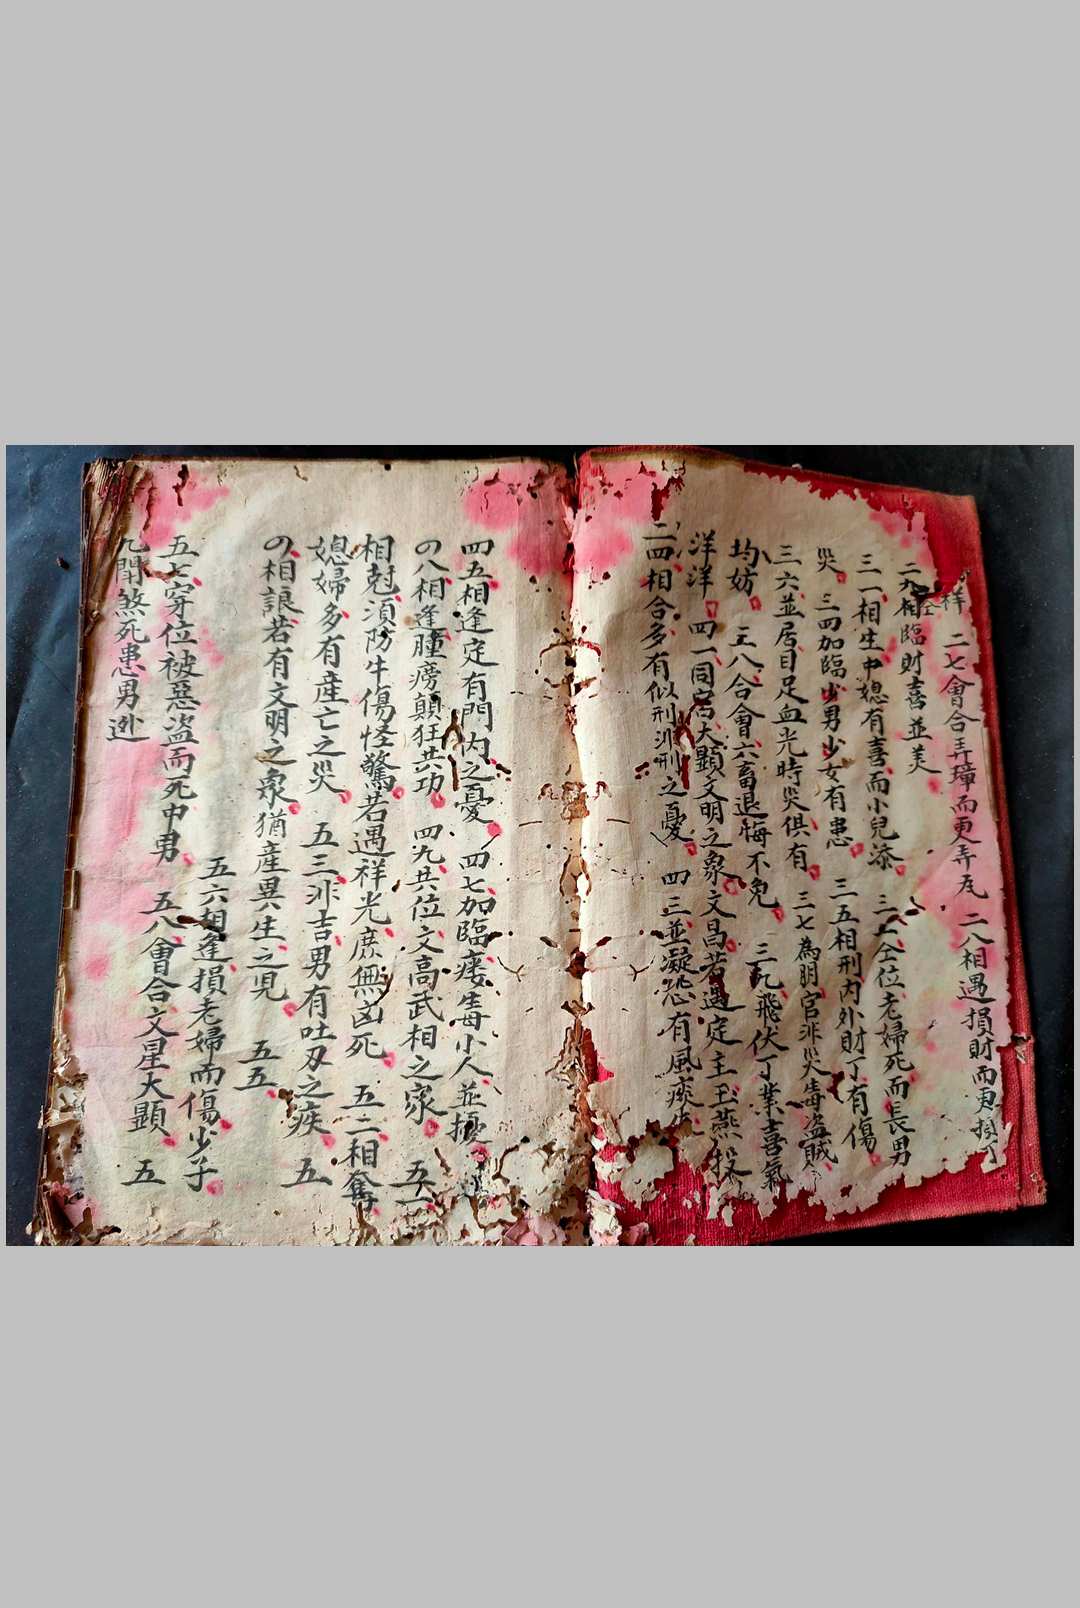 祥 二七會合弄璋而更弄瓦 二八相遇損財而更損丁
二九相臨財喜並美
三一相生中媳有喜而小兒添 三二仝位老婦死而長男
災 三四加臨少男少女有患 三五相刑内外財丁有傷
三六並居目足血光時災俱有 三七為朋官非災毒盗賊
均妨 三八合會六畜退悔不免 三九飛伏丁業喜氣
洋洋 四一同宮大顯文明之象文昌若遇定主玉燕投
二四相合多有似刑非刑之憂 四三並凝恐有風痰
四五相逢定有門内之憂 四七加臨瘘毒小人並擾
の八相逢腫癆顛狂共功 四九共位文高武相之家 五一
相尅須防牛傷怪驚若遇祥光庶無凶死 五二相奪
媳婦多有産亡之災 五三非吉男有吐刃之疾 五
の相譲若有文明之象猶産異生之児 五五
五六相逢損老婦而傷少子
五七穿位被惡盗而死中男 五八會合文星大顯 五
九閗煞死患男迯